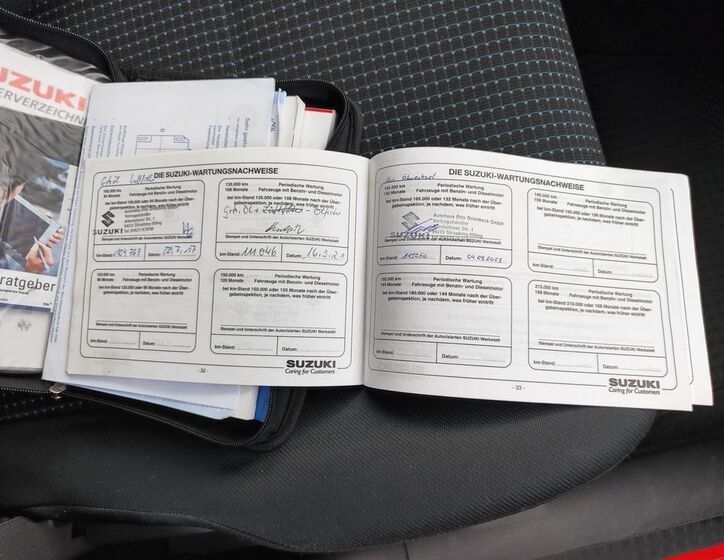 SUZUKI
ratgeber
DIE SUZUKI-WARTUNGSNACHWEISE
105.000 km
84 Monate
Periodische Wartung
Fahrzeuge mit Benzin- und Dieselmotor
gabeinspektion, je nachdem, was früher eintritt
SUZUKI
Stempel und Unterschrift der Autorisierten SUZUKI Werkstatt
km-Stand:
Datum: 20.7.17
135.000 km
108 Monate
Periodische Wartung
Fahrzeuge mit Benzin- und Dieselmotor
bei km-Stand 135.000 oder 108 Monate nach der Über-
gabeinspektion, je nachdem, was früher eintritt
Stempel und Unterschrift der Autorisierten SUZUKI Werkstatt
km-Stand: 111 046
Datum: 16.3.21
120.000 km
96 Monate
Periodische Wartung
Fahrzeuge mit Benzin- und Dieselmotor
bei km-Stand 120.000 oder 96 Monate nach der Über-
gabeinspektion, je nachdem, was früher eintritt
Stempel und Unterschrift der Autorisierten SUZUKI Werkstatt
km-Stand:
Datum:
150.000 km
120 Monate
Periodische Wartung
Fahrzeuge mit Benzin- und Dieselmotor
bei km-Stand 150.000 oder 120 Monate nach der Über-
gabeinspektion, je nachdem, was früher eintritt
Stempel und Unterschrift der Autorisierten SUZUKI Werkstatt
km-Stand:
Datum:
- 32 -
SUZUKI
Caring for Customers
DIE SUZUKI-WARTUNGSNACHWEISE
165.000 km
132 Monate
Periodische Wartung
Fahrzeuge mit Benzin- und Dieselmotor
bei km-Stand 165.000 oder 132 Monate nach der Über-
gabeinspektion, je nachdem, was früher eintritt
Autohaus Otto Griesbeck GmbH
Vertragshändler
94315 Straubing-Ittling
SUZUKI
Stempel und Unterschrift der Autorisierten SUZUKI Werkstatt
km-Stand:
Datum: 04.09.2023
195.000 km
156 Monate
Periodische Wartung
Fahrzeuge mit Benzin- und Dieselmotor
bei km-Stand 195.000 oder 156 Monate nach der Über-
gabeinspektion, je nachdem, was früher eintritt
Stempel und Unterschrift der Autorisierten SUZUKI Werkstatt
km-Stand:
Datum:
180.000 km
144 Monate
Periodische Wartung
Fahrzeuge mit Benzin- und Dieselmotor
bei km-Stand 180.000 oder 144 Monate nach der Über-
gabeinspektion, je nachdem, was früher eintritt
Stempel und Unterschrift der Autorisierten SUZUKI Werkstatt
km-Stand:
Datum:
210.000 km
168 Monate
Periodische Wartung
Fahrzeuge mit Benzin- und Dieselmotor
bei km-Stand 210.000 oder 168 Monate nach der Über-
gabeinspektion, je nachdem, was früher eintritt
Stempel und Unterschrift der Autorisierten SUZUKI Werkstatt
km-Stand:
Datum:
- 33 -
SUZUKI
Caring for Customers